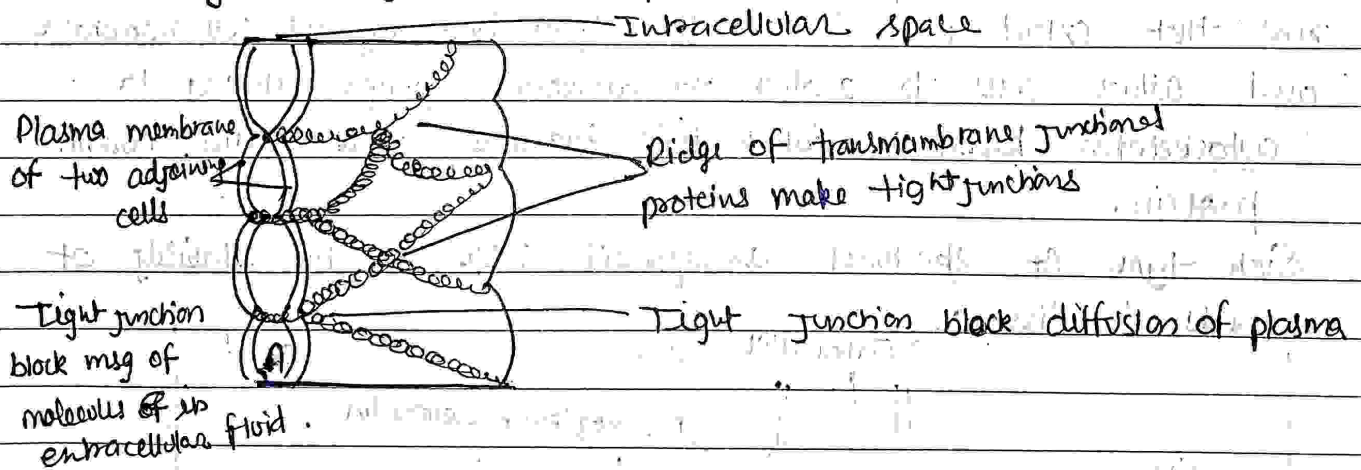 Intracellular space
Plasma membrane
of two adjoining
cells
Ridge of transmambrane junctional
proteins make tight junctions
Tight junction
block msg of
molecules in
extracellular fluid.
Tight junction block diffusion of plasma